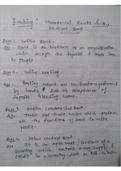 Banking : Commercial Banks &
Central Bank
Ques 1. Define Bank
Ans → Bank is an institution or an organisation
which accepts the deposits & lends loan
to people.
Ques 2. Define Banking
Ans → Banking means all those functions performed
by banks & such as acceptance of
deposits, lending loans.
Ques 3. Define Commercial Bank
Ans → These are those banks which perform
all the functions of bank to make
profit.
Ques 4. Define Central Bank
Ans → It is an apex bank / institution of a
country which controls money supply
& credit in a country such as RBI in India